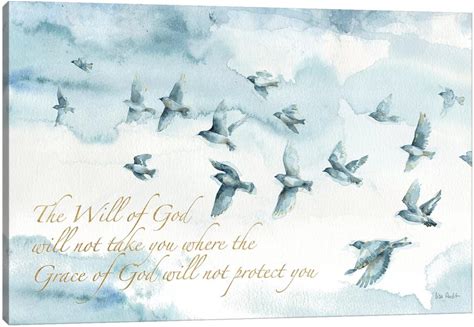 The Will of God
will not take you where the
Grace of God will not protect you